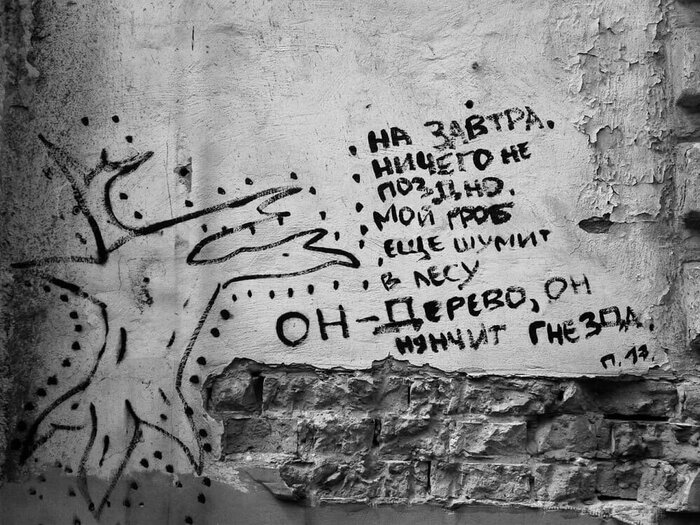 НА ЗАВТРА.
НИЧЕГО НЕ
ПОЗДНО.
МОЙ ГРОБ
ЕЩЕ ШУМИТ
В ЛЕСУ
ОН-ДЕРЕВО, ОН
НЯНЧИТ ГНЕЗДА.
П. 17.